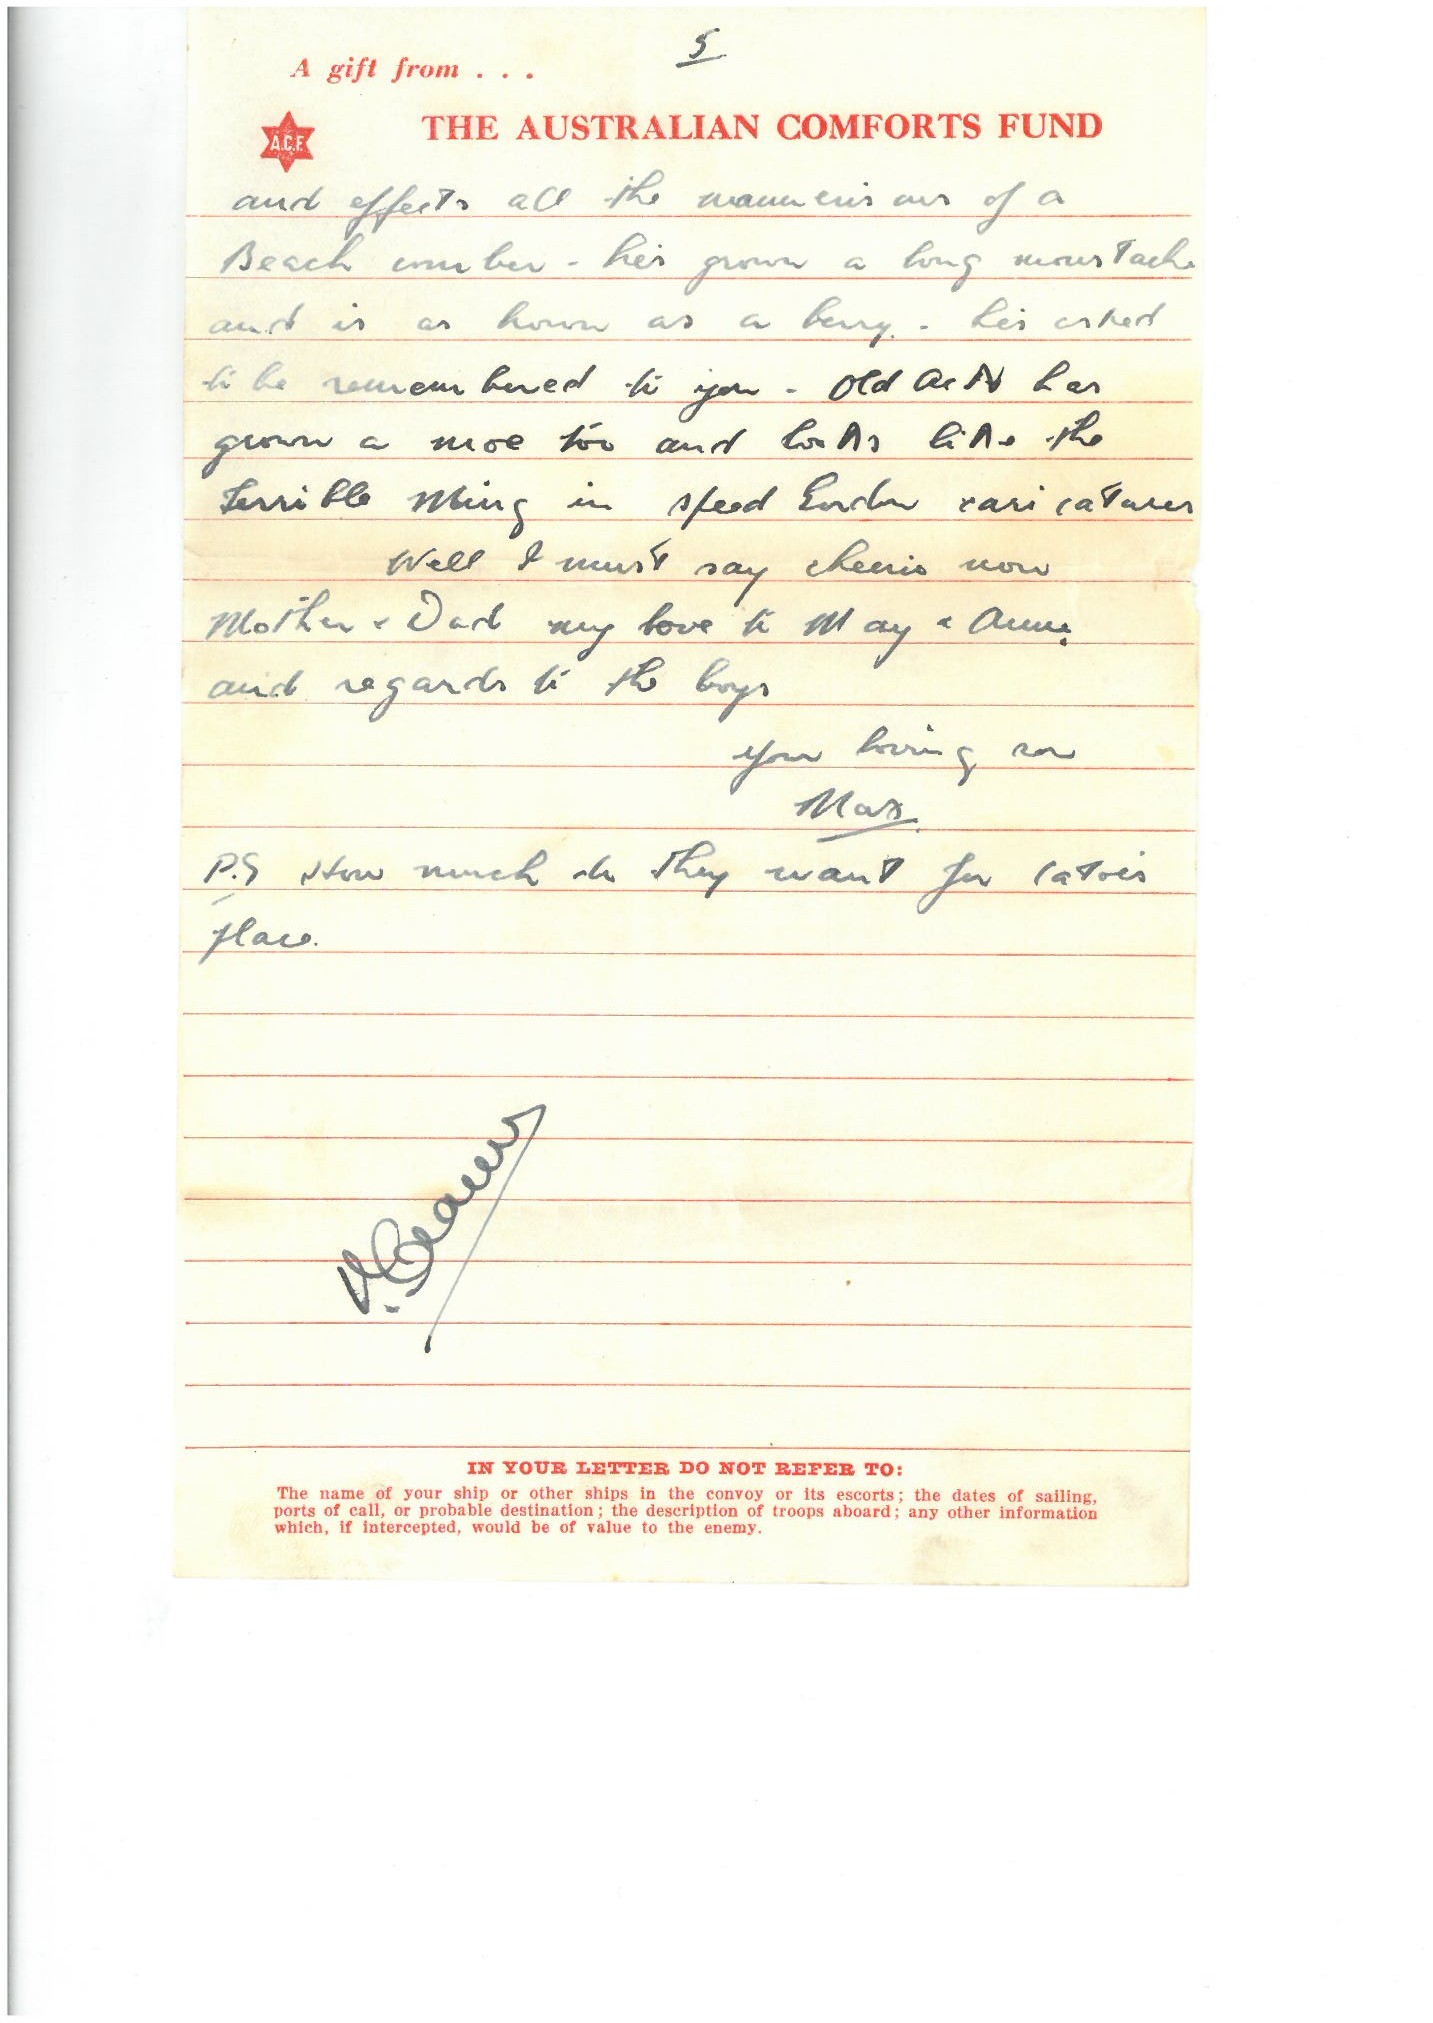 5
A gift from . . .
A.C.F.
THE AUSTRALIAN COMFORTS FUND
and effects all the mannerisms of a
Beach comber - he's grown a long moustache
and is as brown as a berry. - he's asked
to be remembered to you - Old has
grown a moe too and looks like the
terrible Ming in speed Gordon caricatures
Well I must say cheerio now
Mother & Dad my love to May & Anne.
and regards to the boys
Your loving son
Max.
P.S How much do they want for
place.
IN YOUR LETTER DO NOT REFER TO:
The name of your ship or other ships in the convoy or its escorts; the dates of sailing,
ports of call, or probable destination; the description of troops aboard; any other information
which, if intercepted, would be of value to the enemy.